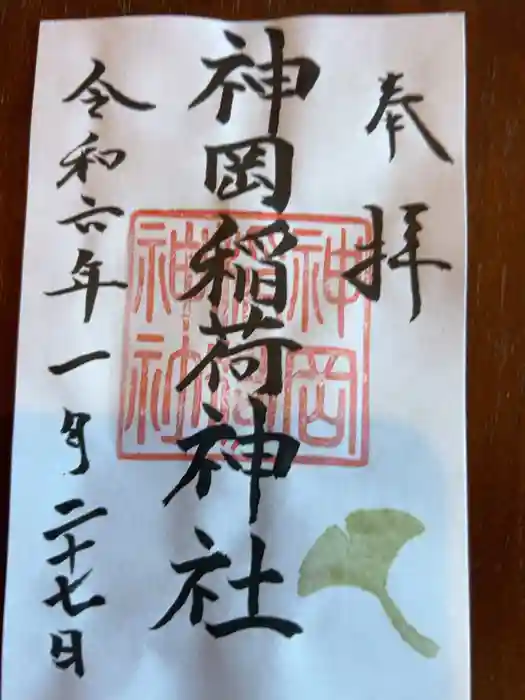 奉拝
神岡稲荷神社
神岡稲荷神社
令和六年一月二十七日